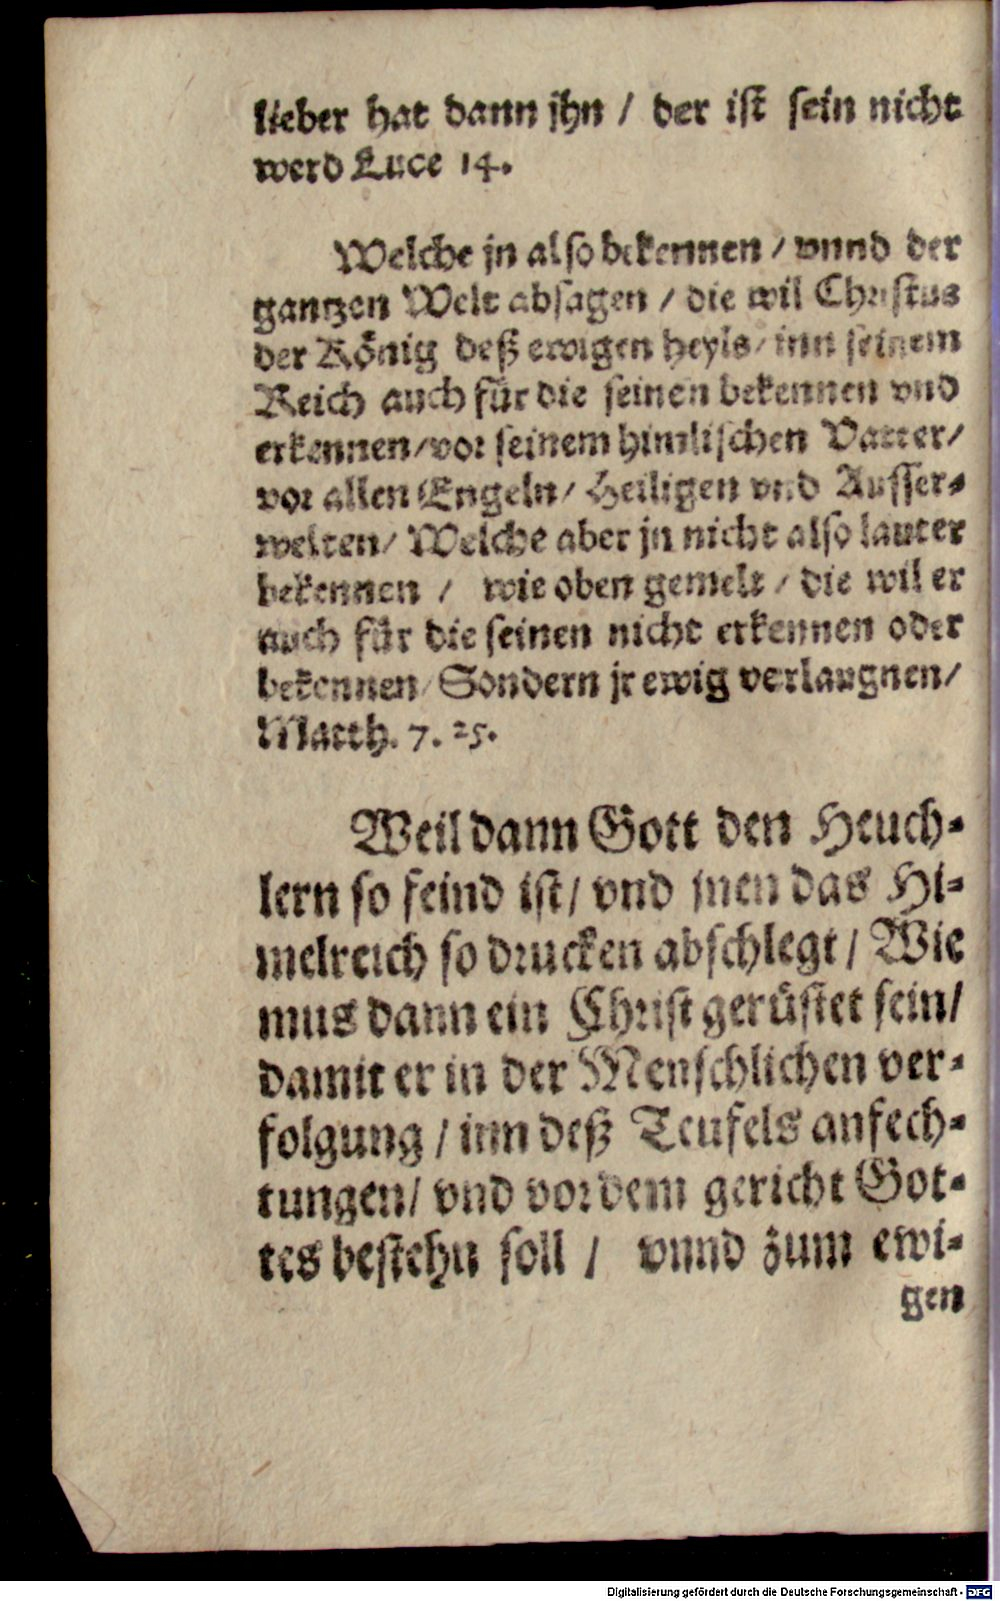 lieber hat dann jhn / der ist sein nicht
werd Luce 14.
Welche jn also bekennen / vnnd der
gantzen Welt absagen / die wil Christus
der König deß ewigen heyls / inn seinem
Reich auch für die seinen bekennen vnd
erkennen / vor seinem himlischen Vatter /
vor allen Engeln / Heiligen vnd Ausser-
welten / Welche aber jn nicht also lauter
bekennen / wie oben gemelt / die wil er
auch für die seinen nicht erkennen oder
bekennen / Sondern jr ewig verlaugnen /
Matth. 7. 25.
Weil dann Gott den Heuch-
lern so feind ist / vnd jnen das Hi-
melreich so drucken abschlegt / Wie
mus dann ein Christ gerüstet sein /
damit er in der Menschlichen ver-
folgung / inn deß Teufels anfech-
tungen / vnd vor dem gericht Got-
tes bestehn soll / vnnd zum ewi-
gen
Digitalisierung gefördert durch die Deutsche Forschungsgemeinschaft - DFG